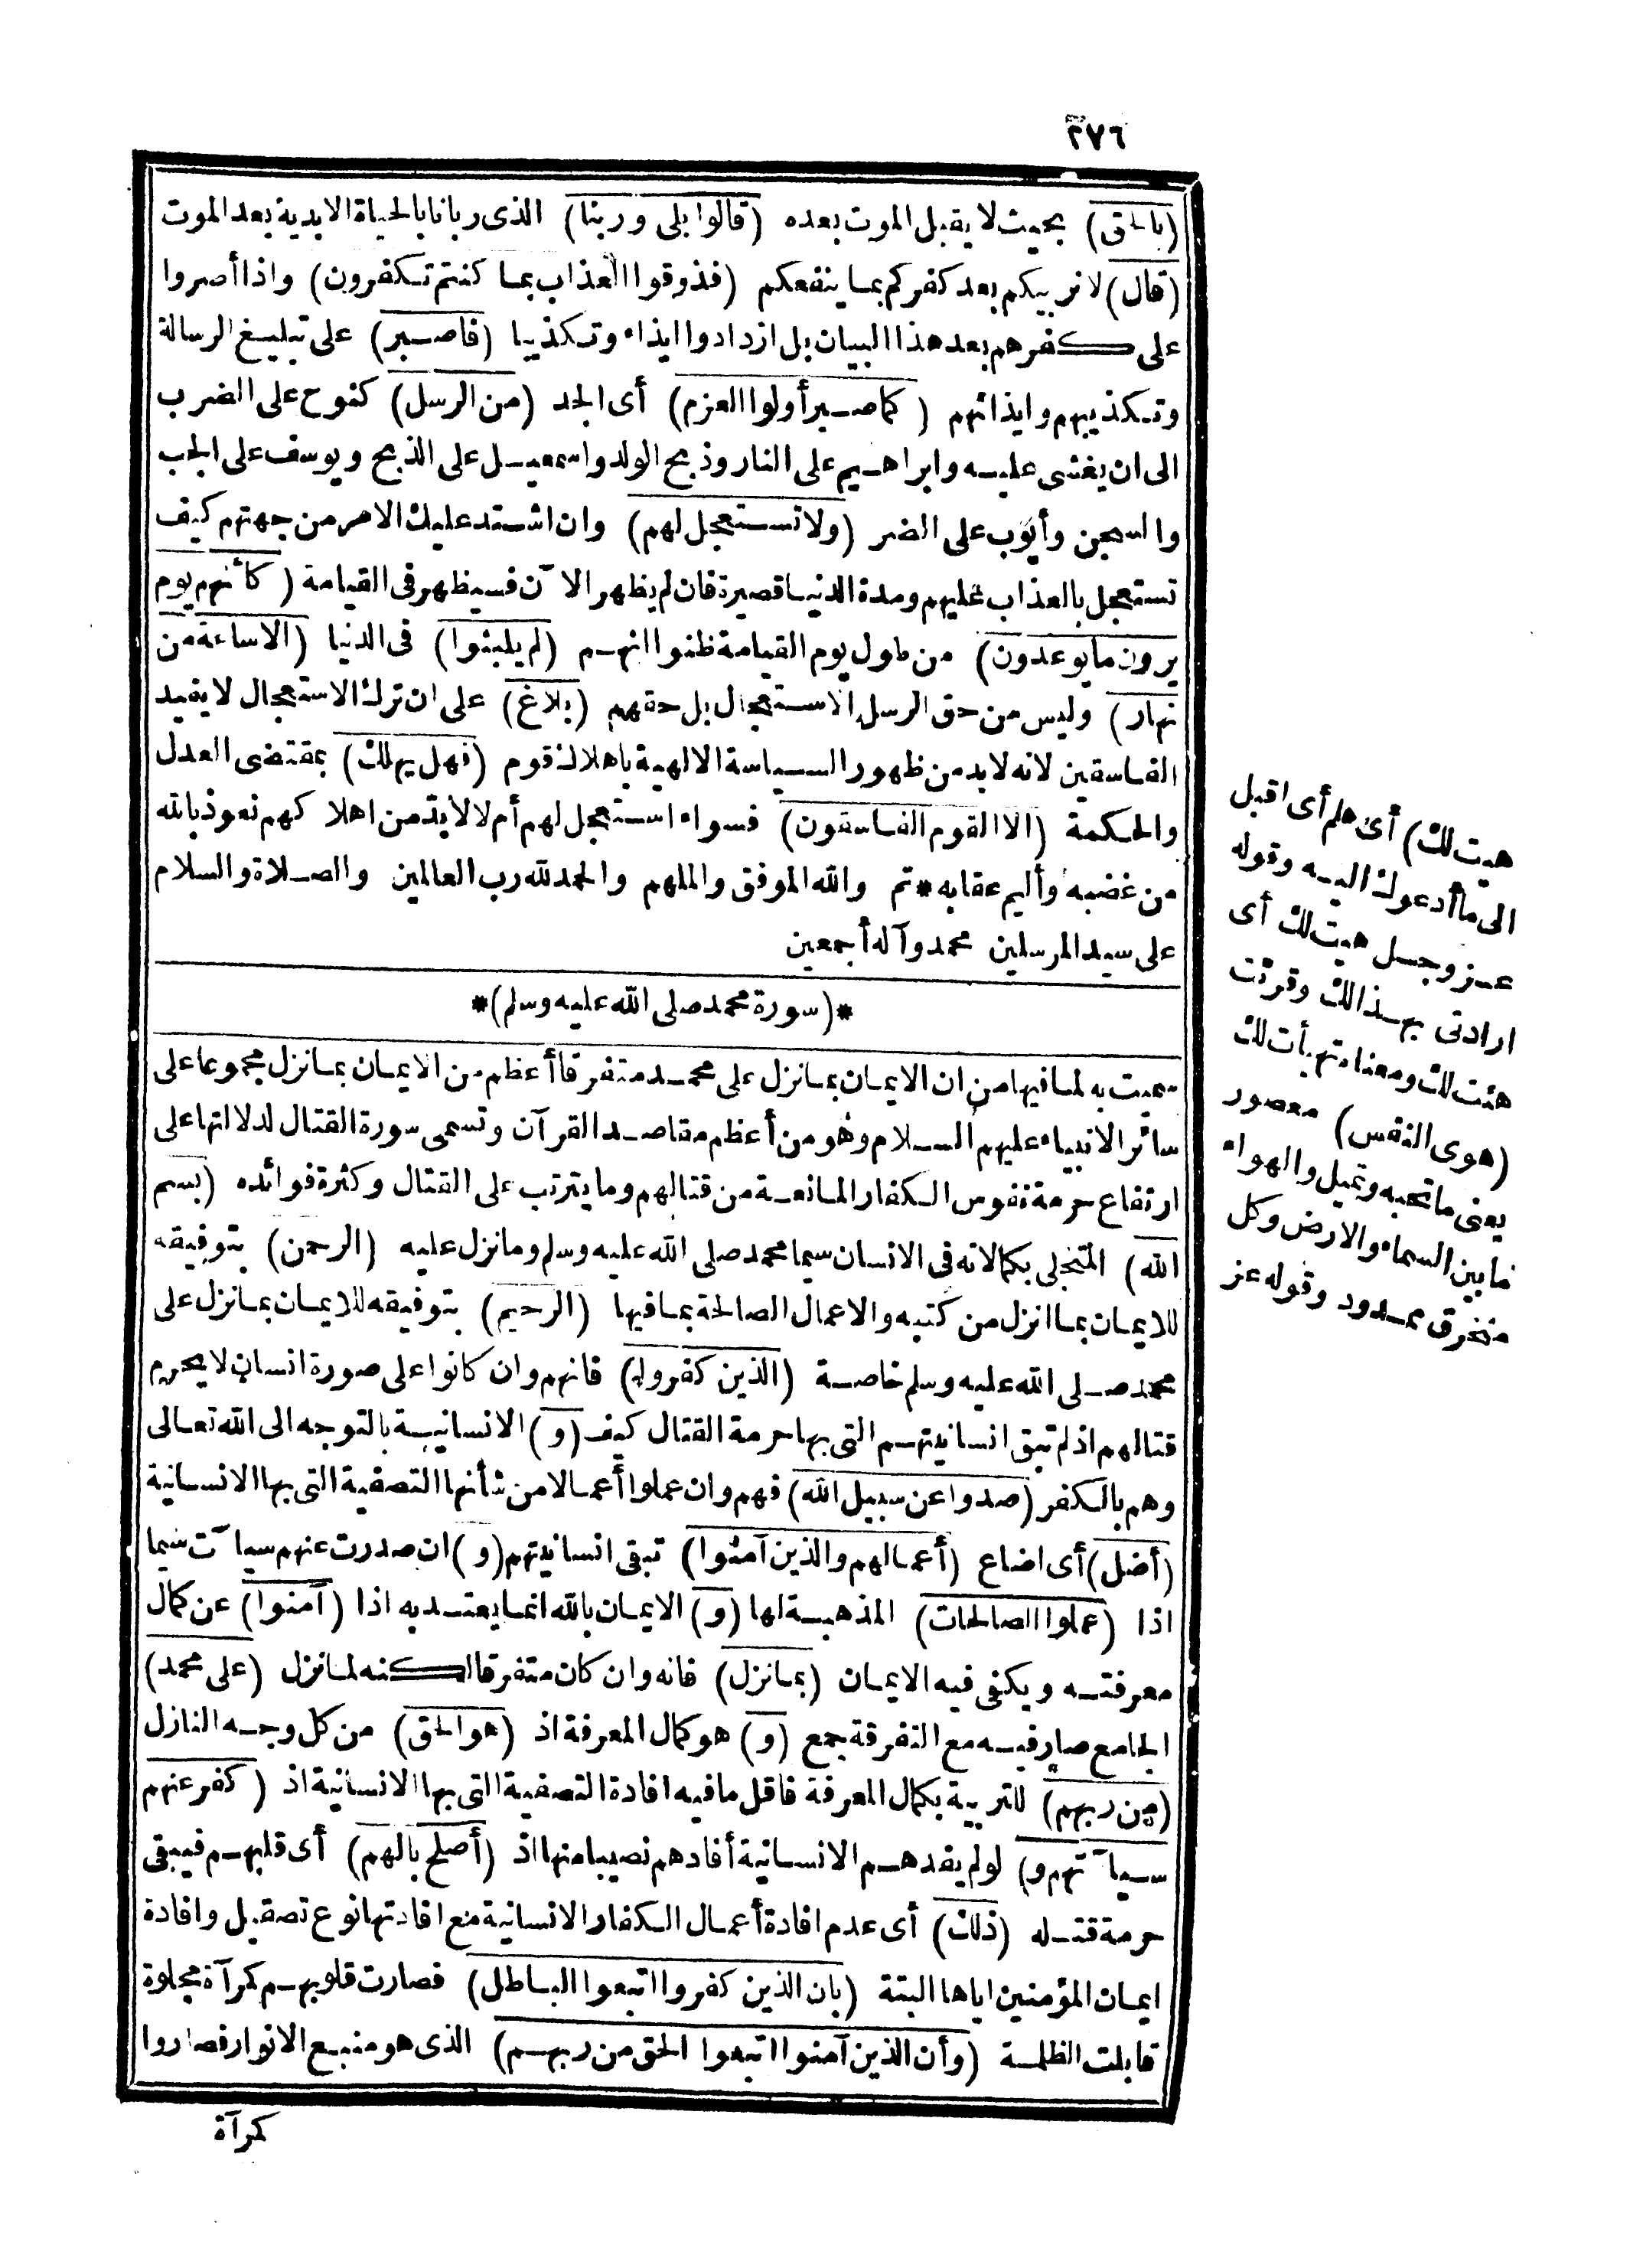 ٢٧٦
(بالحق) بحيث لا يقبل الموت بعده (قالوا بلى وربنا) الذى ربانا بالحياة الابدية بعد الموت
(قال) لا نربيكم بعد كفركم بما ينفعكم (فذوقوا العذاب بما كنتم تكفرون) واذا أصروا
على كفرهم بعد هذا البيان بل ازدادوا ايذاء وتكذيبا (فاصبر) على تبليغ الرسالة
وتكذيبهم وايذائهم (كما صبر أولوا العزم) أى الجد (من الرسل) كنوح على الضرب
الى ان يغشى عليه وابراهيم على النار وذبح الولد واسمعيل على الذبح ويوسف على الجب
والسجن وأيوب على الضر (ولا تستعجل لهم) وان اشتد عليك الامر من جهتهم كيف
تستعجل بالعذاب عليهم ومدة الدنيا قصيرة فان لم يظهر الآن فسيظهر فى القيامة (كأنهم يوم
يرون ما يوعدون) من طول يوم القيامة ظنوا انهم (لم يلبثوا) فى الدنيا (الا ساعة من
نهار) وليس من حق الرسل الاستعجال بل حقهم (بلاغ) على ان ترك الاستعجال لا يفيد
الفاسقين لانه لا بد من ظهور السياسة الالهية باهلاك قوم (فهل يهلك) بمقتضى العدل
والحكمة (الا القوم الفاسقون) فسواء استعجل لهم أم لا لا بد من اهلاكهم نعوذ بالله
من غضبه وأليم عقابه * تم والله الموفق والملهم والحمد لله رب العالمين والصلاة والسلام
على سيد المرسلين محمد وآله أجمعين
*(سورة محمد صلى الله عليه وسلم)*
سميت به لما فيها من ان الايمان بما نزل على محمد متفرقا أعظم من الايمان بما نزل مجموعا على
سائر الانبياء عليهم السلام وهو من أعظم مقاصد القرآن وتسمى سورة القتال لدلالتها على
ارتفاع حرمة نفوس الكفار المانعة من قتالهم وما يترتب على القتال وكثرة فوائده (بسم
الله) المتجلى بكمالاته فى الانسان سيما محمد صلى الله عليه وسلم وما نزل عليه (الرحمن) بتوفيقه
للايمان بما انزل من كتبه والاعمال الصالحة بما فيها (الرحيم) بتوفيقه للايمان بما نزل على
محمد صلى الله عليه وسلم خاصة (الذين كفروا) فانهم وان كانوا على صورة انسان لا يحرم
قتالهم اذ لم تبق انسانيتهم التى بها حرمة القتال كيف (و) الانسانية بالتوجه الى الله تعالى
وهم بالكفر (صدوا عن سبيل الله) فهم وان عملوا أعمالا من شأنها التصفية التى بها الانسانية
(أضل) أى اضاع (أعمالهم والذين آمنوا) تبقى انسانيتهم (و) ان صدرت عنهم سيآت سيما
اذا (عملوا الصالحات) المذهبة لها (و) الايمان بالله انما يعتد به اذا (آمنوا) عن كمال
معرفته ويكفى فيه الايمان (بما نزل) فانه وان كان متفرقا لكنه لما نزل (على محمد)
الجامع صار فيه مع التفرقة جمع (و) هو كمال المعرفة اذ (هو الحق) من كل وجه النازل
(من ربهم) للتربية بكمال المعرفة فاقل ما فيه افادة التصفية التى بها الانسانية اذ (كفر عنهم
سيآتهم و) لو لم يفدهم الانسانية أفادهم نصيبا منها اذ (أصلح بالهم) أى قلبهم فيبقى
حرمة قتله (ذلك) أى عدم افادة أعمال الكفار الانسانية مع افادتها نوع تصقيل وافادة
ايمان المؤمنين اياها البتة (بان الذين كفروا اتبعوا الباطل) فصارت قلوبهم كمرآة مجلوة
قابلت الظلمة (وأن الذين آمنوا اتبعوا الحق من ربهم) الذى هو منبع الانوار فصاروا
كمرآة
هيت لك) أى هلم أى اقبل
الى ما أدعوك اليه وقوله
عز وجل هيت لك أى
ارادتى بهذا لك وقرئت
هئت لك ومعناه تهيأت لك
(هوى النفس) مقصور
يعنى ما تحبه وتميل والهواء
ما بين السماء والارض وكل
منخرق ممدود وقوله عز